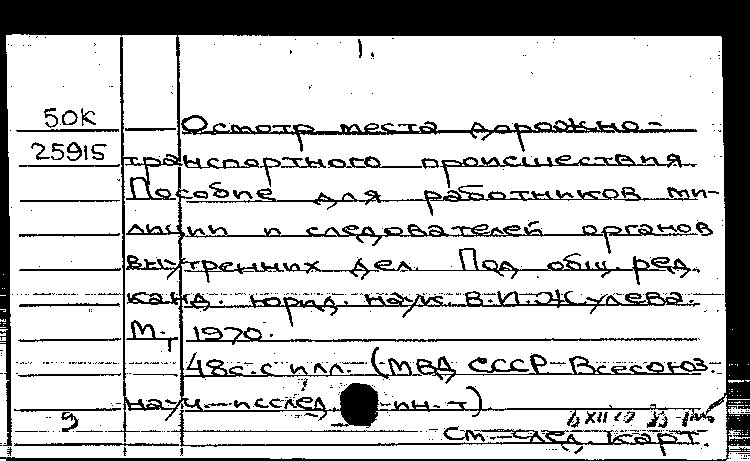 1.
50К
Осмотр места дорожно-
25915
транспортного происшествия.
Пособие для работников ми-
лиции и следователей органов
внутренних дел. Под общ. ред.
канд. юрид. наук В.И. Жулева.
М., 1970.
48 с. с илл. (МВД СССР. Всесоюз.
науч.-исслед. ин-т)
9
См. след. карт.